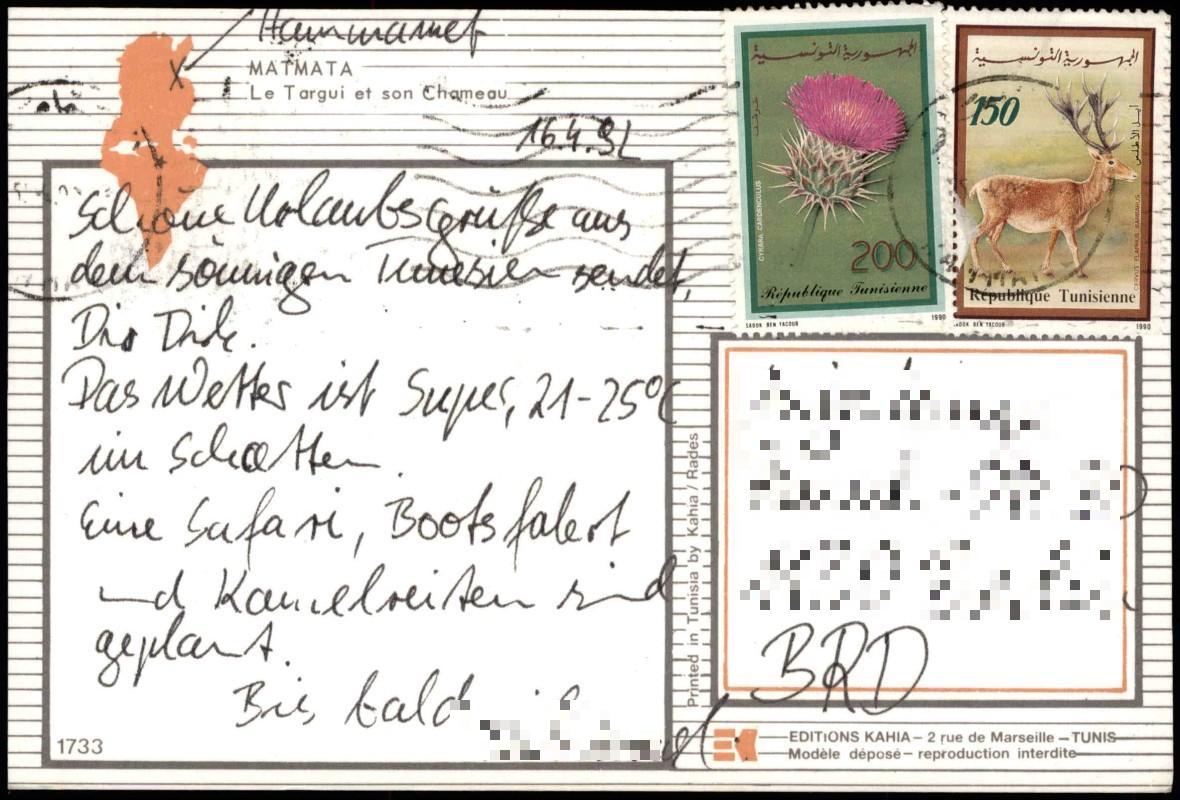 Hammamet
MATMATA
Le Targui et son Chameau
16.4.92
Schöne Urlaubsgrüße aus
dem sonnigen Tunesien sendet,
Dir Dirk.
Das Wetter ist Super, 21-25°C
im Schatten.
Eine Safari, Bootsfahrt
und Kamelreiten sind
geplant.
Bis bald
1733
Printed in Tunisia by Kahia / Rades
الجمهورية التونسية
خرشف
CYNARA CARDENCULUS
200
République Tunisienne
SADOK BEN YACOUB
1990
الجمهورية التونسية
150
أيل الأطلس
CERVUS ELAPHUS BARBARUS
République Tunisienne
SADOK BEN YACOUB
1990
BRD
EK
EDITIONS KAHIA – 2 rue de Marseille – TUNIS
Modèle déposé – reproduction interdite